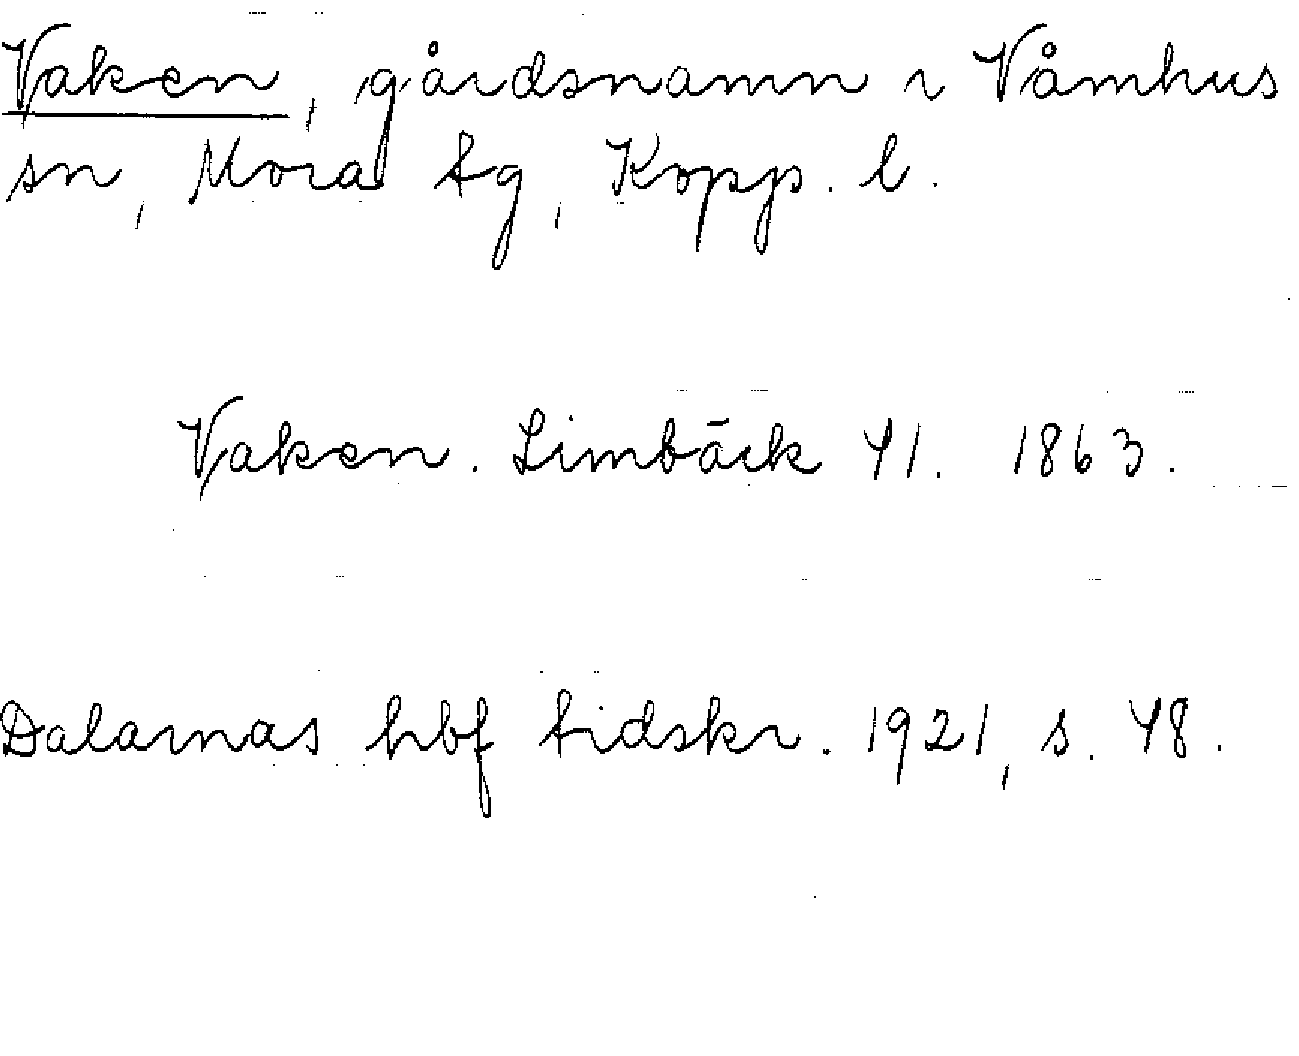 Vaken, gårdsnamn i Våmhus
sn, Mora tg, Kopp. l.
Vaken. Limbäck 41. 1863.
Dalarnas hbf tidskr. 1921, s. 48.